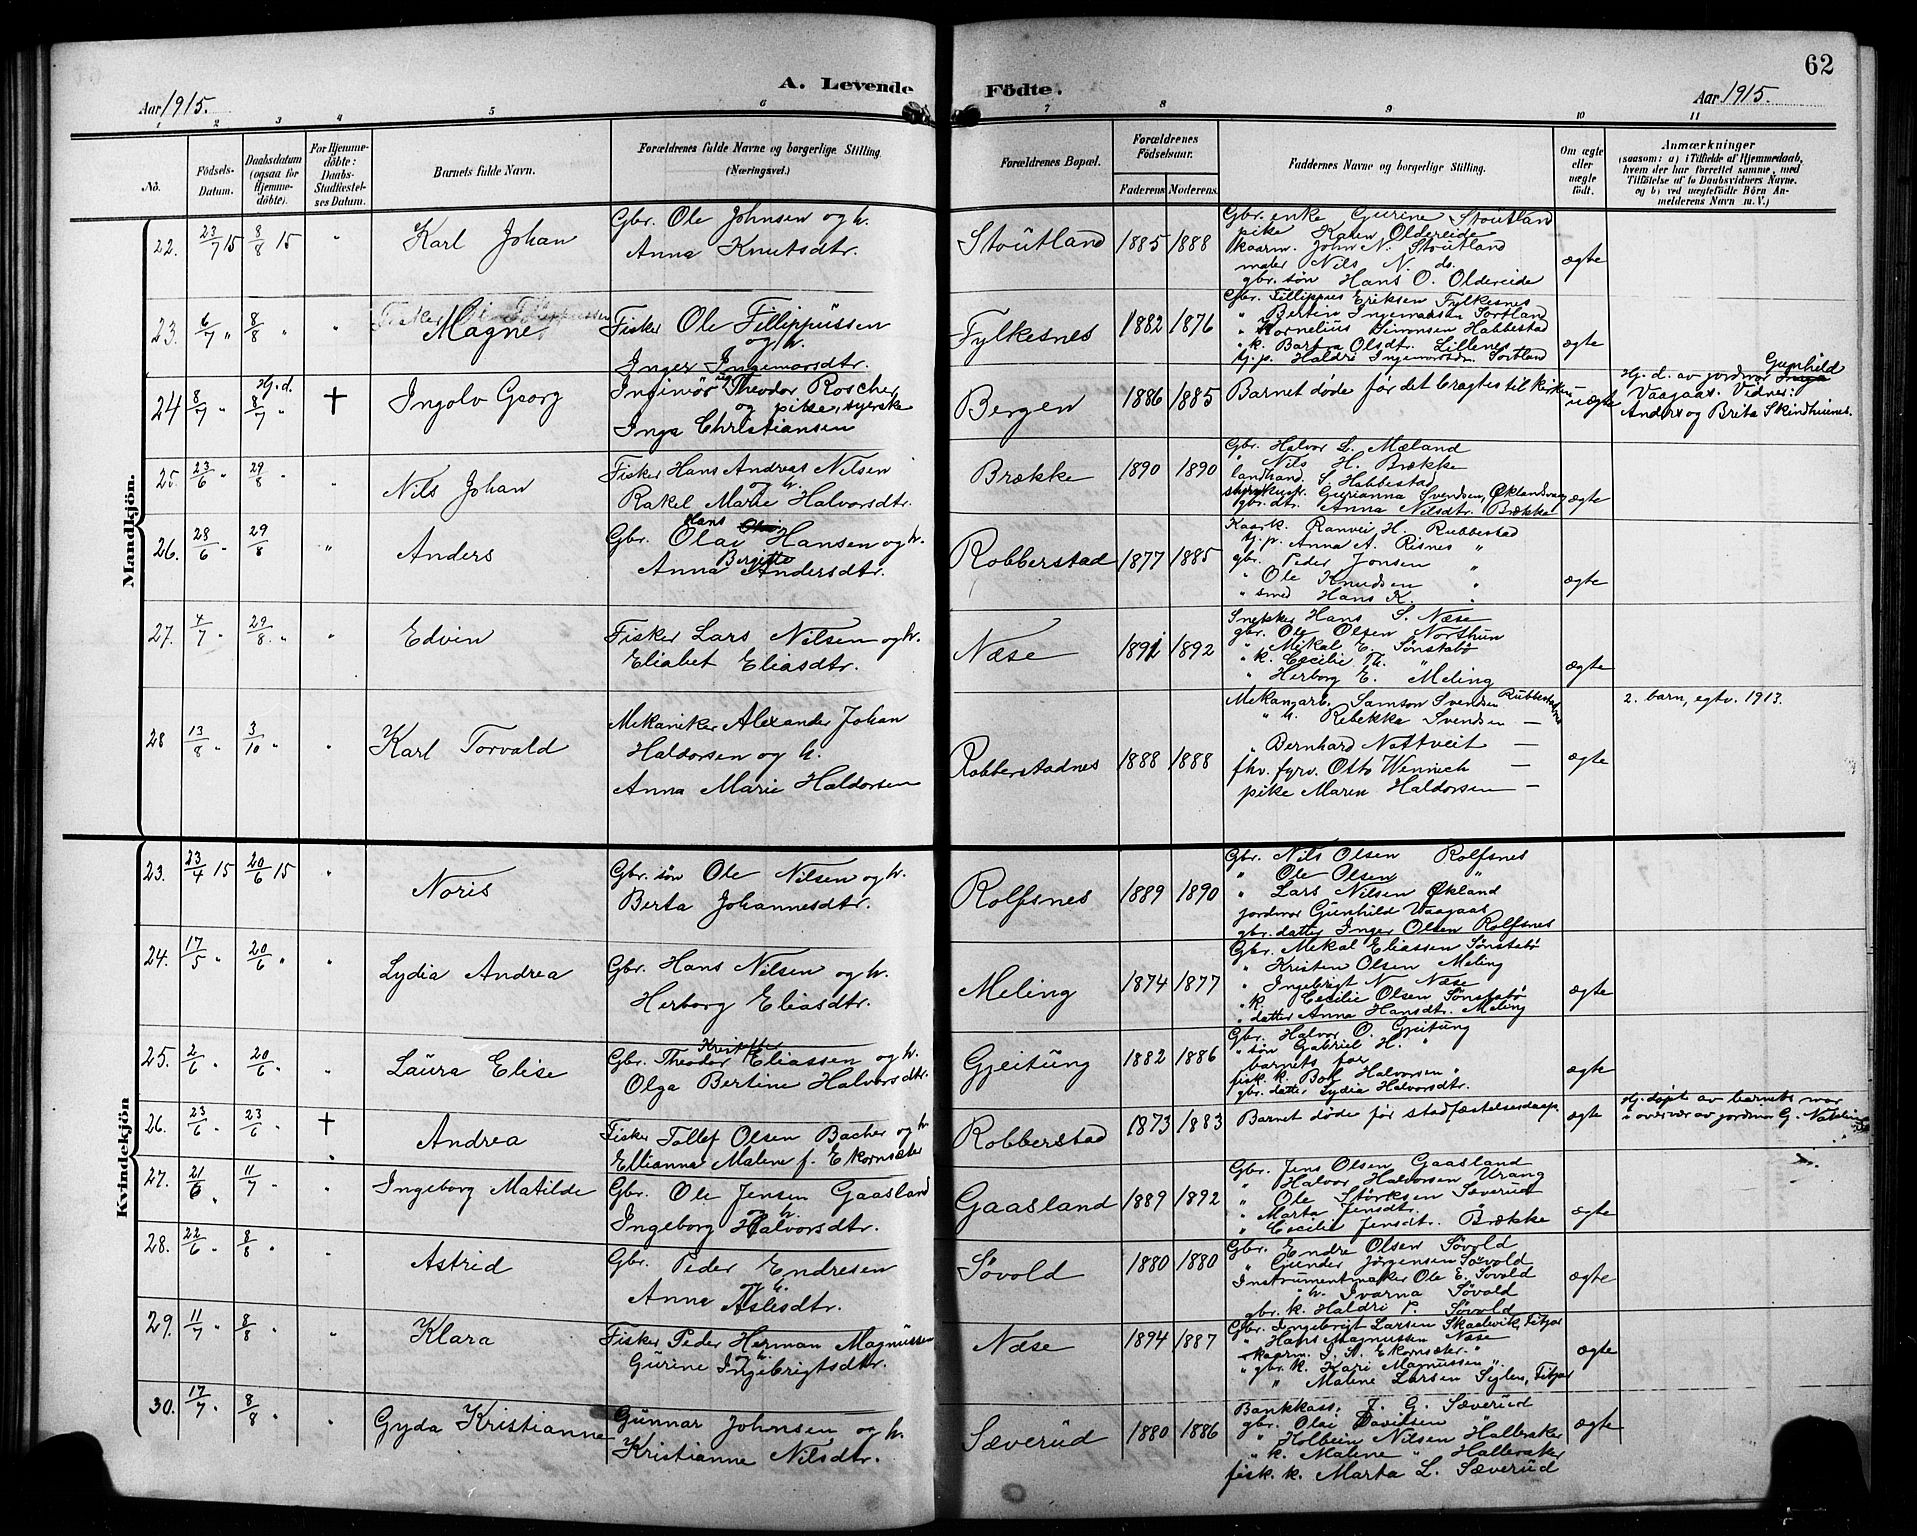 62
A. Levende Födte.
Aar 1915.
Aar 1915.
1 2 3 4 5 6 7 8 9 10 11
No.
Födsels-Datum.
Daabsdatum (ogsaa for Hjemme-döbte).
For Hjemme-döbte: Daabs-Stadfæstel-ses Datum.
Barnets fulde Navn.
Forældrenes fulde Navne og borgerlige Stilling (Næringsvei.)
Forældrenes Bopæl.
Forældrenes Födselsaar.
Faderens. Moderens.
Faddernes Navne og borgerlige Stilling.
Om ægte eller uægte födt.
Anmærkninger
(saasom: a) i Tilfælde af Hjemmedaab, hvem der har forrettet samme, med Tilföielse af to Daabsvidners Navne, og b) ved uægtefödte Börn Anmelderens Navn m. V.)
Mandkjön.
22. 23/7 15 8/8 15 " Karl Johan
Gbr. Ole Johnsen og h.
Anna Knutsdtr.
Stoutland 1885 1888
Gbr. enke Gurine Stoutland
pike Karen Oldereide
kaarm. John N. Stoutland
maler Nils N. ds.
gbr. søn Hans O. Oldereide
ægte
23. 6/7 " 8/8 " " Magne
Fisker Ole Fillippussen
og h.
Inger Ingemarsdtr.
Fylkesnes 1882 1876
Gbr. Fillippus Eriksen Fylkesnes
" Bertin Ingemarsen Sortland
" Kornelius Simonsen Habbestad
" k. Bartra Olsdtr. Lillenes
tj. p. Haldri Ingemarsdtr. Sortland
ægte
24 8/7 " Hj. d. 8/7 " † Ingolv Georg
Infinör Theodor Roscher
og pike, syerske
Inga Christiansen
Bergen 1886 1885
Barnet døde før det bragtes til kirken
uægte
Hj. d. av jordmor Gunhild
Vaagaas. Vidner:
Anders og Brita Skindhuenes.
25. 23/6 " 29/8 " " Nils Johan
Fisker Hans Andreas Nilsen
og h.
Rakel Marie Halvorsdtr.
Brække 1890 1890
Gbr. Halvor L. Mæland
" Nils H. Brække
landhand. S. Habbestad
Gurianna Svendsen, Øklandsvaag
gbr. dtr. Anna Nilsdtr. Brække
ægte
26. 28/6 " 29/8 " Anders
Gbr. Hans Olai Hansen og h.
Anna Birgitte Andersdtr.
Robberstad 1877 1885
Kaark. Ranvei H. Rubbestad
tj. p. Anna A. Risnes "
gbr. Peder Jonsen "
" Ole Knudsen "
" smed Hans K. "
ægte
27. 4/7 " 29/8. " " Edvin
Fisker Lars Nilsen og h.
Eliabet Eliasdtr.
Næse 1891 1892
Snekker Hans S. Næse
gbr. Ole Olsen Northun
" Mikal E. Sønstabø
" k. Cecilie Th. "
" Herborg E. Meling
ægte
28 13/8 " 3/10 " " Karl Torvald
Mekaniker Alexander Johan
Haldorsen og h.
Anna Marie Haldorsen
Robberstadnes 1888 1888
Mekan.arb. Samson Svendsen Rubbestadnes
" h. Rebekka Svendsen —
" Bernhard Nattveit —
fhv. fyrv. Otto Wennich —
pike Maren Haldorsen —
ægte
2. barn, egtv. 1913.
Kvindekjön
23. 23/4 15 20/6 15 " Noris
Gbr. søn Ole Nilsen og h.
Berta Johannesdtr.
Rolfsnes 1889 1890
Gbr. Nils Olsen Rolfsnes
" Ole Olsen "
" Lars Nilsen Økland
jordmor Gunhild Vaagaas
gbr. datter Inger Olsen Rolfsnes
24. 17/5 " 20/6 " " Lydia Andrea
Gbr. Hans Nilsen og h.
Herborg Eliasdtr.
Meling 1874 1877
Gbr. Mekal Eliassen Sønstabø
" Kristen Olsen Meling
" Ingebrigt N. Næse
" k. Cecilie Olsen Sønstabø
" datter Anna Hansdtr. Meling
ægte
25. 2/6 " 20/6 " " Laura Elise
Gbr. Theodor Eliassen og h.
Olga Bertine Halvorsdtr.
Gjeitung 1882 1886
Gbr. Halvor O. Gjeitung
" søn Gabriel H. "
barnets far
fisk. k. Bolj Halvorsen "
gbr. datter Lydia Halvorsdtr.
ægte
26. 23/6 " 23/6 " † Andrea
Fisker Tollef Olsen Bacher og h.
Ellianna Malene f. Ekornsæter
Robberstad 1873 1883
Barnet døde før stadfæstelsesdaap.
ægte
Hj. døpt av barnets mor
i overvær av jordmor G.
27. 21/6 " 11/7 " Ingeborg Matilde
Gbr. Ole Jensen Gaasland
og h.
Ingeborg Halvorsdtr.
Gaasland 1889 1892
Gbr. Jens Olsen Gaasland
" Halvor Halvorsen Urang
" Ole Størksen Sæverud
" Marta Jensdtr.
" Cecilie Jensdtr. Brække
ægte
28. 22/6 8/8 " " Astrid
Gbr. Peder Endresen
og h.
Anna Aslesdtr.
Søvold 1880 1880
Gbr. Endre Olsen Søvold
" Gunder Jørgensen Søvold
Instrumentmaker Ole E. Søvold
" h. Ivarna Søvold
gbr. k. Haldri P. Søvold
ægte
29. 11/7 8/8 " " Klara
Fisker Peder Herman Magnussen
og h.
Gurine Ingebrigtsdtr.
Næse 1894 1887
Gbr. Ingebrigt Larsen Skaalevik, Fitjar
" Hans Magnussen Næse
kaarm. J. A. Ekornsæter. "
" gbr. k. Kari Magnussen "
" Malene Larsen Fitjar
ægte
30. 17/7 8/8 " " Gyda Kristianne
Gunnar Johnsen og h.
Kristianne Nilsdtr.
Sæverud 1880 1886
Bankkass. J. G. Sæverud
gbr. Olai Davidsen
" Kolbein Nilsen Halleraker
" k. Malene " Halleraker
fisk. k. Marta L. Sæverud
ægte